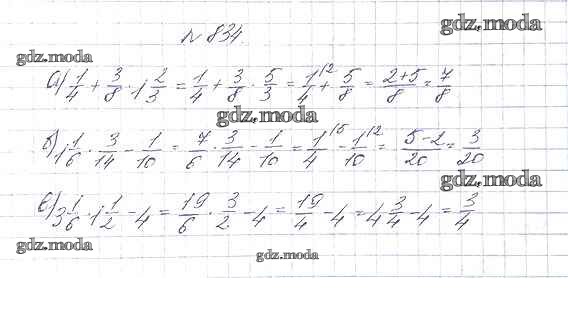 №834.
gdz.moda
gdz.moda
а) 1/4 + 3/8 · 1 2/3 = 1/4 + 3/8 · 5/3 = 1/4 \2 + 5/8 = 2+5/8 = 7/8
gdz.moda
б) 1 1/6 · 3/14 - 1/10 = 7/6 · 3/14 - 1/10 = 1/4 \5 - 1/10 \2 = 5-2/20 = 3/20
gdz.moda
в) 3 1/6 · 1 1/2 - 4 = 19/6 · 3/2 - 4 = 19/4 - 4 = 4 3/4 - 4 = 3/4
gdz.moda
gdz.moda
gdz.moda